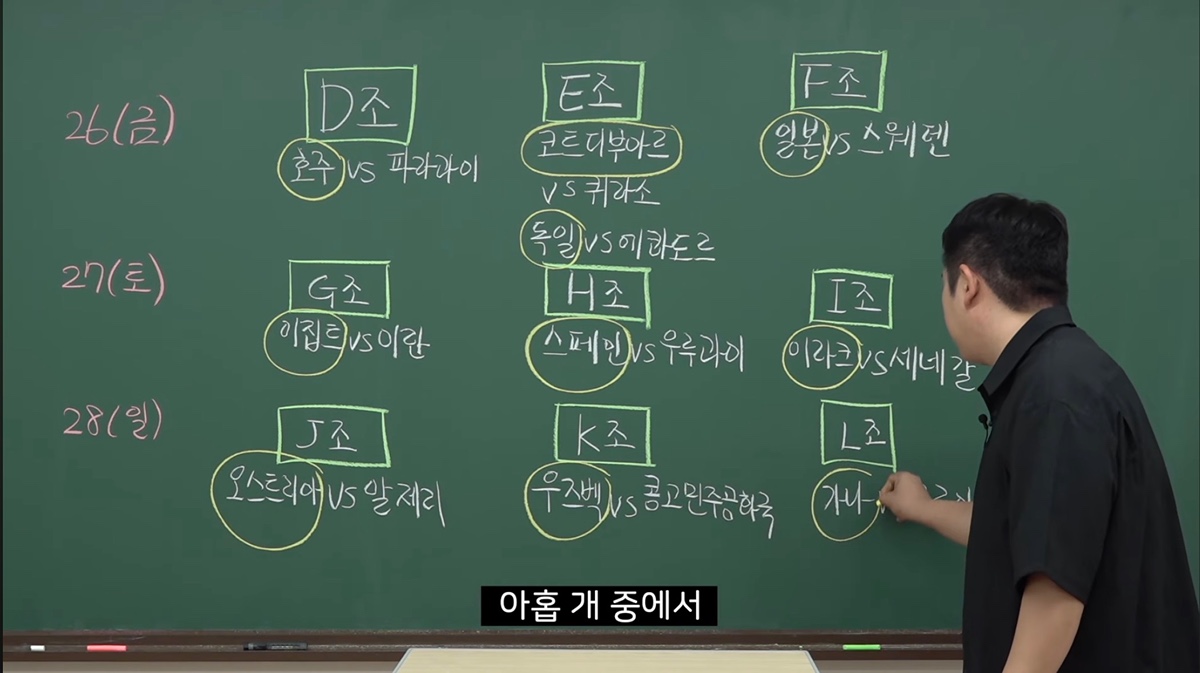 26(금)
D조
호주 vs 파라과이
E조
코트디부아르
vs 퀴라소
독일 vs 에콰도르
F조
일본 vs 스웨덴
27(토)
G조
이집트 vs 이란
H조
스페인 vs 우루과이
I조
이라크 vs 세네갈
28(일)
J조
오스트리아 vs 알제리
K조
우즈벡 vs 콩고민주공화국
L조
가나
아홉 개 중에서